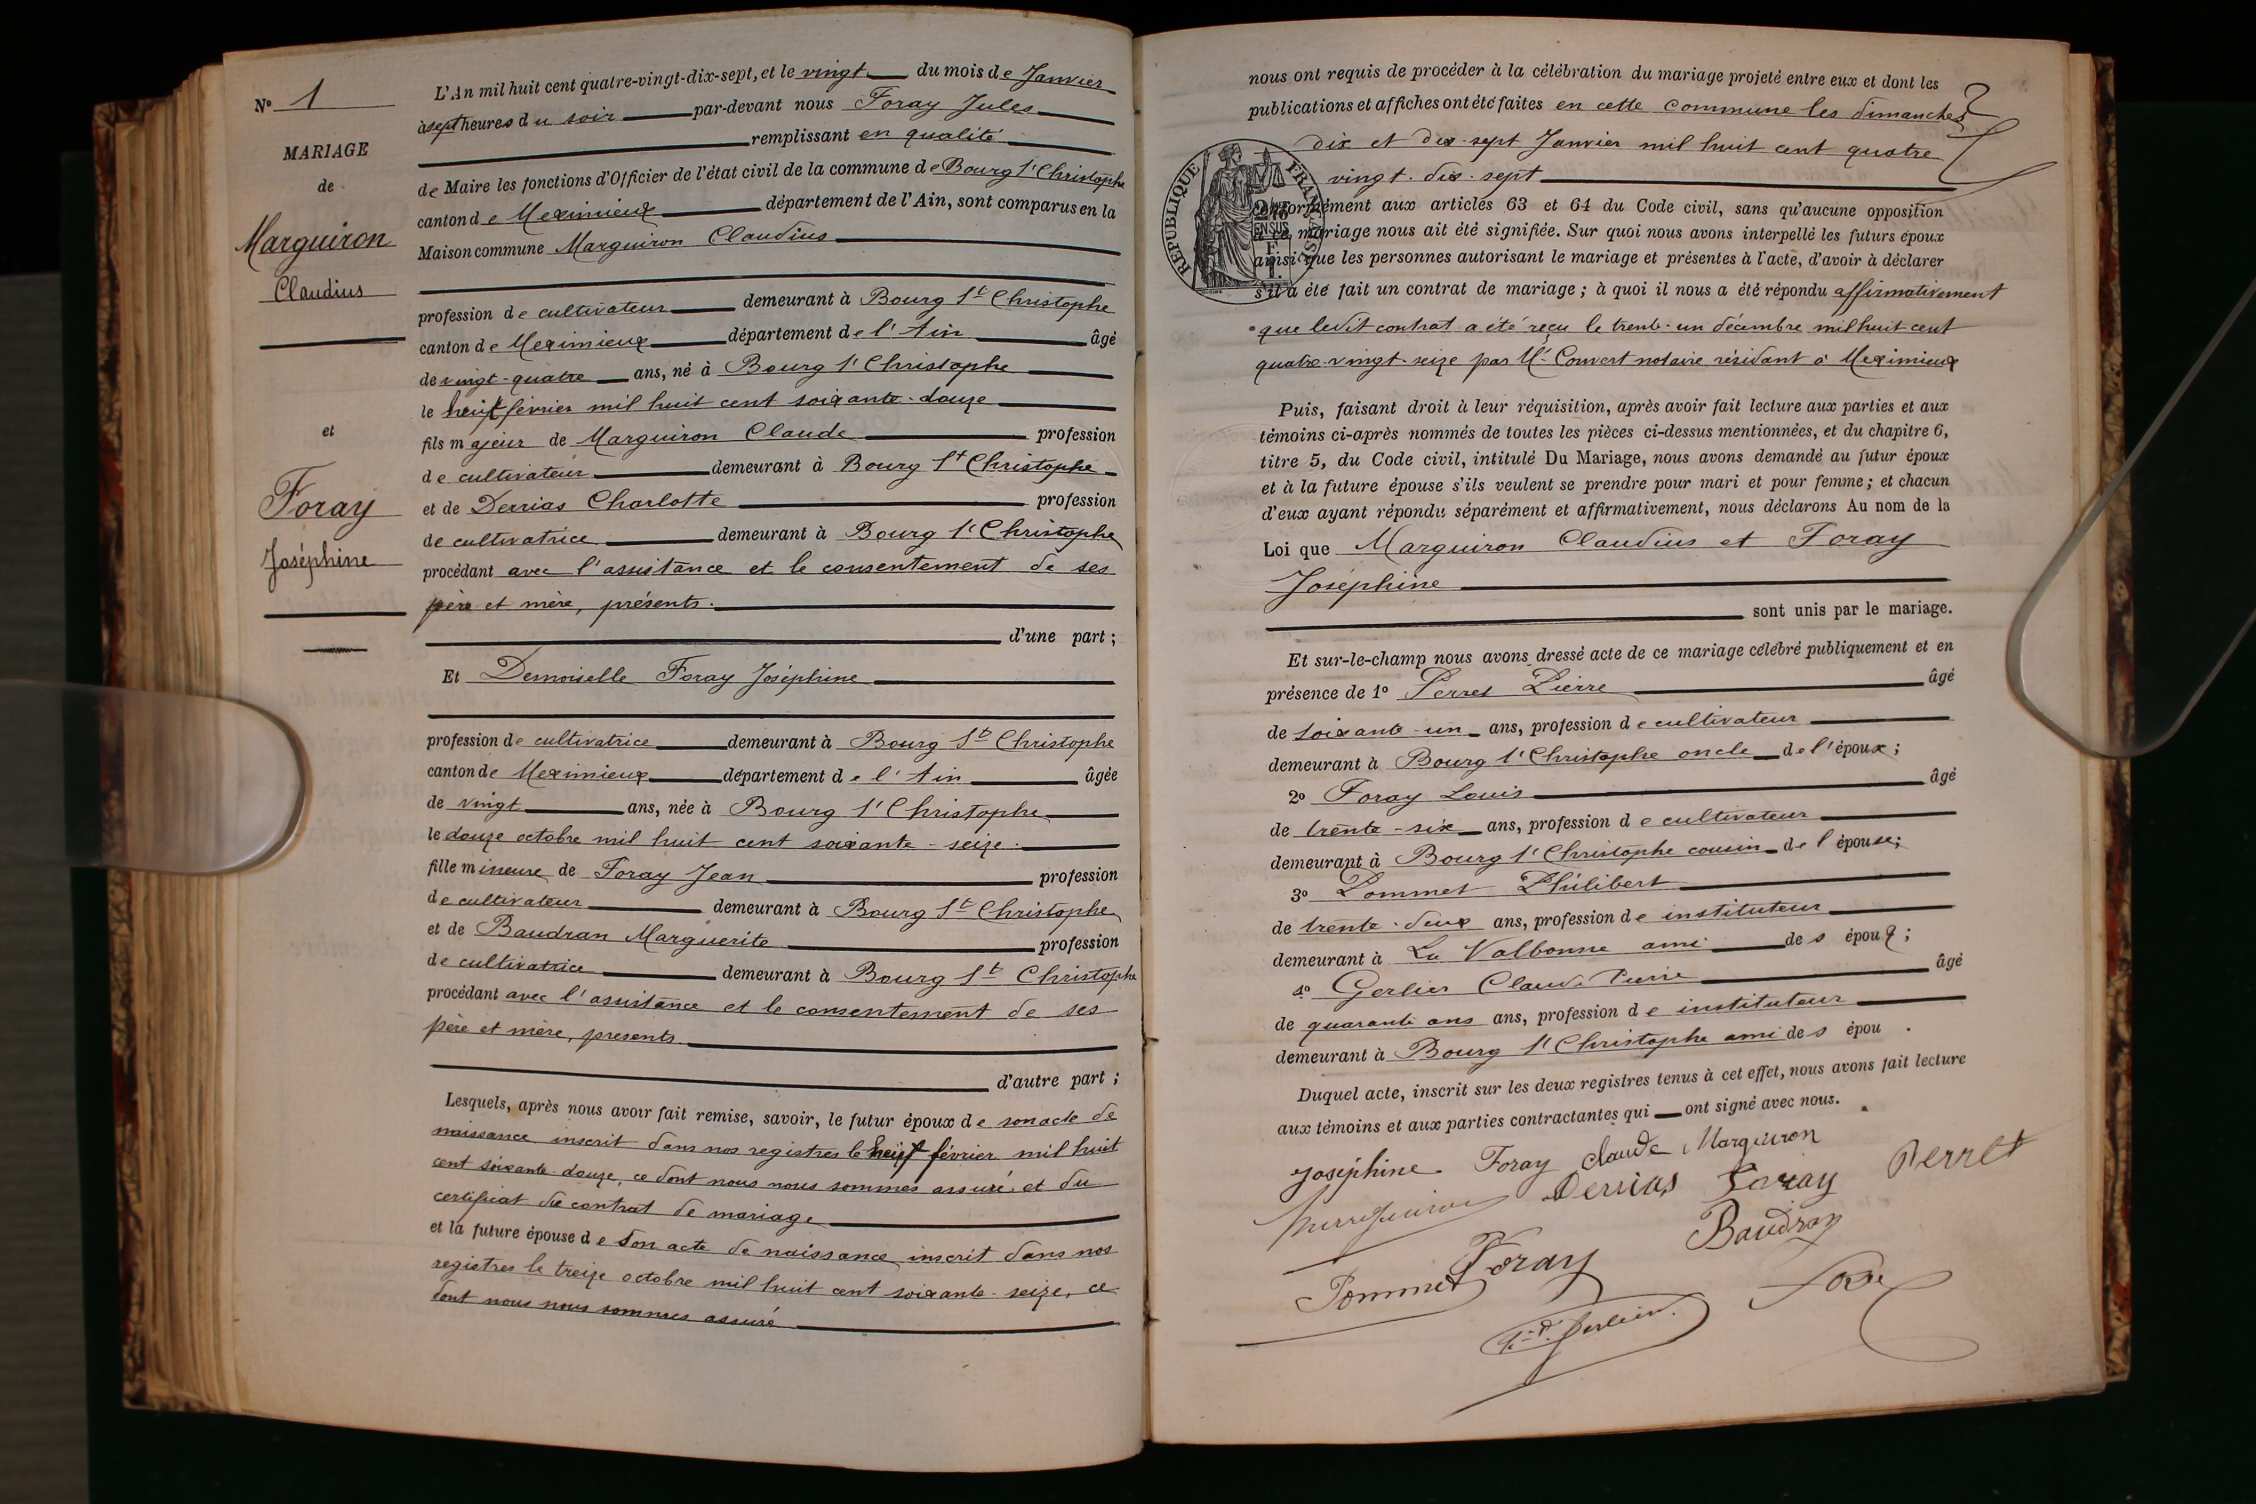 N° 1
MARIAGE
de
Marguiron
Claudius
et
Foray
Joséphine
L'An mil huit cent quatre-vingt-dix-sept, et le vingt du mois de Janvier
à sept heures du soir par-devant nous Foray Jules
remplissant en qualité
de Maire les fonctions d'Officier de l'état civil de la commune de Bourg St Christophe
canton de Meximieux département de l'Ain, sont comparus en la
Maison commune Marguiron Claudius
profession de cultivateur demeurant à Bourg St Christophe
canton de Meximieux département de l'Ain âgé
de vingt-quatre ans, né à Bourg St Christophe
le février mil huit cent soixante-douze
fils majeur de Marguiron Claude profession
de cultivateur demeurant à Bourg St Christophe
et de Derrias Charlotte profession
de cultivatrice demeurant à Bourg St Christophe
procédant avec l'assistance et le consentement de ses
père et mère, présents.
d'une part ;
Et Demoiselle Foray Joséphine
profession de cultivatrice demeurant à Bourg St Christophe
canton de Meximieux département de l'Ain âgée
de vingt ans, née à Bourg St Christophe
le douze octobre mil huit cent soixante-seize.
fille mineure de Foray Jean profession
de cultivateur demeurant à Bourg St Christophe
et de Baudran Marguerite profession
de cultivatrice demeurant à Bourg St Christophe
procédant avec l'assistance et le consentement de ses
père et mère, présents
d'autre part ;
Lesquels, après nous avoir fait remise, savoir, le futur époux de son acte de
naissance inscrit dans nos registres le février mil huit
cent soixante-douze, ce dont nous nous sommes assuré et du
certificat de contrat de mariage
et la future épouse de son acte de naissance inscrit dans nos
registres le treize octobre mil huit cent soixante-seize, ce
dont nous nous sommes assuré
nous ont requis de procéder à la célébration du mariage projeté entre eux et dont les
publications et affiches ont été faites en cette commune les dimanches
dix et dix-sept Janvier mil huit cent quatre
vingt-dix-sept
RÉPUBLIQUE FRANÇAISE
conformément aux articles 63 et 64 du Code civil, sans qu'aucune opposition
à ce mariage nous ait été signifiée. Sur quoi nous avons interpellé les futurs époux
ainsi que les personnes autorisant le mariage et présentes à l'acte, d'avoir à déclarer
s'il a été fait un contrat de mariage ; à quoi il nous a été répondu affirmativement
que ledit contrat a été reçu le trente-un décembre mil huit cent
quatre-vingt-seize par Me Convert notaire résidant à Meximieux
Puis, faisant droit à leur réquisition, après avoir fait lecture aux parties et aux
témoins ci-après nommés de toutes les pièces ci-dessus mentionnées, et du chapitre 6,
titre 5, du Code civil, intitulé Du Mariage, nous avons demandé au futur époux
et à la future épouse s'ils veulent se prendre pour mari et pour femme ; et chacun
d'eux ayant répondu séparément et affirmativement, nous déclarons Au nom de la
Loi que Marguiron Claudius et Foray
Joséphine
sont unis par le mariage.
Et sur-le-champ nous avons dressé acte de ce mariage célébré publiquement et en
présence de 1° Perret Pierre âgé
de soixante-un ans, profession de cultivateur
demeurant à Bourg St Christophe oncle de l'époux ;
2° Foray Louis âgé
de trente-six ans, profession de cultivateur
demeurant à Bourg St Christophe cousin de l'épouse ;
3° Pommet Philibert
de trente-deux ans, profession de instituteur
demeurant à La Valbonne ami des époux ;
4° Gerlier Claude Pierre âgé
de quarante ans ans, profession de instituteur
demeurant à Bourg St Christophe ami des épou .
Duquel acte, inscrit sur les deux registres tenus à cet effet, nous avons fait lecture
aux témoins et aux parties contractantes qui ont signé avec nous.
Joséphine Foray claude Marguiron
Derrias Foray Perret
Baudran
Foray
Pommet